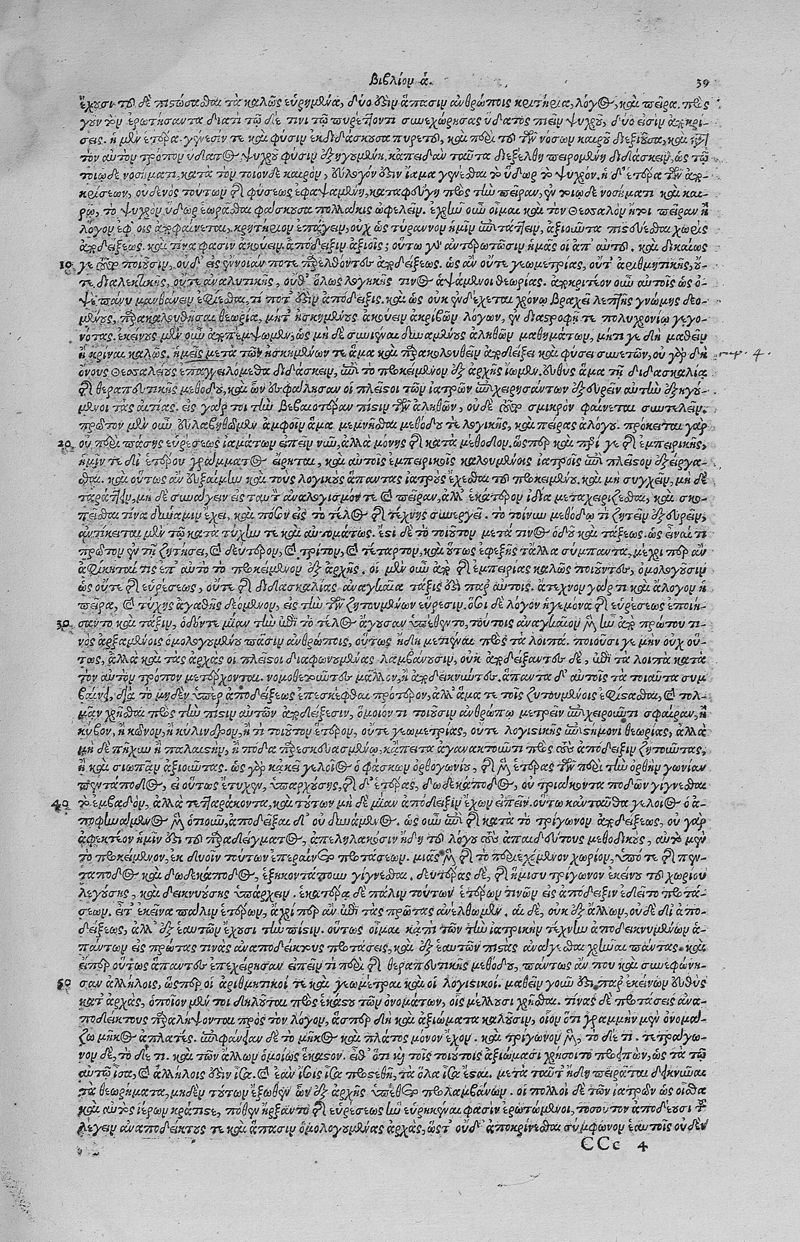 Βιβλίον ά. 39
ἔχουσι τοῦ δὲ πιστώσασθαι τὰ καλῶς εὑρημένα, δύο ἐστὶν ἅπασιν ἀνθρώποις κριτήρια, λόγος, καὶ πεῖρα. πρὸς
γοῦν τὸν ἐρωτήσαντα διατί τῷ δέ τινι τῷ πυρέττοντι συνεχώρησας ὕδατος πιεῖν ψυχροῦ, δύο εἰσὶν ἀποκρί-
σεις. ἡ μὲν ἑτέρα γένεσίν τε καὶ φύσιν ἐκδιδάσκουσα πυρετοῦ, καὶ περὶ τοῦ τῶν νόσων καιροῦ διεξιοῦσα, καὶ
τὸν αὐτὸν τρόπον ὕδατος ψυχροῦ φύσιν ἐξηγουμένη, κἀπειδὰν ταῦτα διεξέλθῃ πειρωμένη διδάσκειν, ὡς τῷ
τοιῷδε νοσήματι, κατὰ τὸν τοιόνδε καιρὸν, εὔλογόν ἐστιν ἴαμα γενέσθαι τὸ ὕδωρ τὸ ψυχρόν. ἡ δ' ἑτέρα τῶν ἀπο-
κρίσεων, οὐδενὸς τούτων τῆς φύσεως ἐφαψαμένη, καταφεύγει πρὸς τὴν πεῖραν, ἐν τοιῷδε νοσήματι καὶ και-
ρῷ, τὸ ψυχρὸν ὕδωρ ἑωρᾶσθαι φάσκουσα πολλάκις ὠφελεῖν. ἐχρῆν οὖν οἶμαι καὶ τὸν Θεσσαλὸν ἤτοι πεῖραν ἢ
λόγον ἐφ' οἷς ἀποφαίνεται, κριτήριον ἐπάγειν, οὐχ ὡς τύραννον ἡμῖν ἐπιτάττειν, ἀξιοῦντα πιστεύεσθαι χωρὶς
ἀποδείξεως. καὶ τίνα φασὶν ἀκούειν ἀπόδειξιν ἀξιοῖς; οὕτω γ' ἀντερωτῶσιν ἡμᾶς οἱ ἀπ' αὐτοῦ. καὶ δικαίως
10 γε τοῦτο ποιοῦσιν, οὐδ' εἰς ἔννοιάν ποτε προελθόντες ἀποδείξεως. ὡς ἂν οὔτε γεωμετρίας, οὔτ' ἀριθμητικῆς, οὔ-
τε διαλεκτικῆς, οὔτε ἀναλυτικῆς, οὔθ' ὅλως λογικῆς τινος ἁψάμενοι θεωρίας. ἀποκριτέον οὖν αὐτοῖς ὡς ὁ-
ψὲ πάνυ μανθάνειν ἐφίεσθαι, τί ποτ' ἐστὶν ἀπόδειξις. καὶ ὡς οὐκ ἐνδέχεται χρόνῳ βραχεῖ λεπτῆς γνώμης δεο-
μένοις, παρακολουθῆσαι θεωρίᾳ, μήτ' ἠσκημένους ἀκούειν ἀκριβῶν λόγων, ἐν διαστροφῇ τε πολυχρονίῳ γεγο-
νότας. ἐκείνους μὲν οὖν ἀποπέμψωμεν, ὡς μηδὲ συνεῖναι δυναμένους ἀληθῶν μαθημάτων, μήτι γε δὴ μαθεῖν
ἢ κρῖναι καλῶς, ἡμεῖς μετὰ τῶν ἠσκημένων τε ἅμα καὶ παρακολουθεῖν ἀποδείξει καὶ φύσει συνετῶν, οὐ γὰρ δὴ
ὄνους Θεσσαλείους ἐπαγγειλόμεθα διδάσκειν, ἐπὶ τὸ προκείμενον ἐξ ἀρχῆς ἴωμεν, εὐθὺς ἅμα τῇ διδασκαλίᾳ
τῆς θεραπευτικῆς μεθόδου, καὶ ὧν ἐσφάλησαν οἱ πλεῖστοι τῶν ἰατρῶν ἐπιχειρησάντων ἐξευρεῖν αὐτὴν ἐξηγού-
μενοι τὰς αἰτίας. εἰς γάρ τοι τὴν βεβαιοτέραν πίστιν τῶν ἀληθῶν, οὐδὲ τοῦτο σμικρὸν φαίνεται συντελεῖν.
πρῶτον μὲν οὖν εὐλαβηθῶμεν ἀμφοῖν ἅμα μεμνῆσθαι μεθόδου τε λογικῆς, καὶ πείρας ἀλόγου. πρόκειται γὰρ
20 οὐ περὶ πάσης εὑρέσεως ἰαμάτων εἰπεῖν νῦν, ἀλλὰ μόνης τῆς κατὰ μέθοδον. ὥσπερ καὶ περί γε τῆς ἐμπειρικῆς,
ἡμῖν τε δι' ἑτέρου γράμματος εἴρηται, καὶ αὐτοῖς ἐμπειρικοῖς καλουμένοις ἰατροῖς ἐπὶ πλεῖστον ἐξείργα-
σται. καὶ οὕτως ἂν εὐξαίμην καὶ τοὺς λογικοὺς ἅπαντας ἰατροὺς ἔχεσθαι τοῦ προκειμένου, καὶ μὴ συγχεῖν, μηδὲ
ταράττειν, μηδὲ συνάγειν εἰς ταὐτ' ἀναλογισμόν τε καὶ πεῖραν, ἀλλ' ἑκάτερον ἰδίᾳ μεταχειρίζεσθαι, καὶ σκο-
πεῖσθαι τίνα δύναμιν ἔχει, καὶ πόσον εἰς τὸ τέλος τῆς τέχνης συνεργεῖ. τὸ τοίνυν μεθόδῳ τι ζητεῖν ἐξευρεῖν,
ἀντίκειται μὲν τῷ κατὰ τύχην τε καὶ αὐτομάτως. ἔστι δὲ τὸ τοιοῦτον μετά τινος ὁδοῦ καὶ τάξεως. ὡς εἶναί τι
πρῶτον ἐν τῇ ζητήσει, καὶ δεύτερον, καὶ τρίτον, καὶ τέταρτον, καὶ οὕτως ἐφεξῆς τἄλλα σύμπαντα, μέχρι περ ἂν
ἀφίκηταί τις ἐπ' αὐτὸ τὸ προκείμενον ἐξ ἀρχῆς. οἱ μὲν οὖν ἀπὸ τῆς ἐμπειρίας καλῶς ποιοῦντες, ὁμολογοῦσιν
ὡς οὔτε τῆς εὑρέσεως, οὔτε τῆς διδασκαλίας ἀναγκαία τάξις ἐστὶ παρ' αὐτοῖς. ἄτεχνον γάρ τι καὶ ἄλογον ἡ
πεῖρα, καὶ τύχης ἀγαθῆς δεόμενον, εἰς τὴν τῶν ζητουμένων εὕρεσιν. ὅσοι δὲ λόγον ἡγεμόνα τῆς εὑρέσεως ἐποιή-
30 σαντο καὶ τάξιν, ὁδόν τε μίαν τὴν ἐπὶ τὸ τέλος ἄγουσαν ὑπέθεντο, τούτοις ἀναγκαῖον ἦν ἀπὸ πρώτου τι-
νὸς ἀρξαμένοις ὁμολογουμένου πᾶσιν ἀνθρώποις, οὕτως ἤδη μετιέναι πρὸς τὰ λοιπά. ποιοῦσί γε μὴν οὐχ οὕ-
τως, ἀλλὰ καὶ τὰς ἀρχὰς οἱ πλεῖστοι διαφωνουμένας λαμβάνουσιν, οὐκ ἀποδείξαντες δὲ, ἐπὶ τὰ λοιπὰ κατὰ
τὸν αὐτὸν τρόπον μετέρχονται. νομοθετοῦντες μᾶλλον, ἢ ἀποδεικνύντες. ἅπαντα δ' αὐτοῖς τὰ τοιαῦτα συμ
βαίνει, διὰ τὸ μηδὲν ὑπὲρ ἀποδείξεως ἐπεσκέφθαι πρότερον, ἀλλ' ἅμα τε τοῖς ζητουμένοις ἐφίστασθαι, καὶ τολ-
μᾶν χρῆσθαι πρὸς τὴν πίστιν αὐτῶν ἀποδείξεσιν, ὅμοιόν τι ποιοῦσιν ἀνθρώπῳ μετρεῖν ἐπιχειροῦντι σφαῖραν, ἢ
κύβον, ἢ κῶνον, ἢ κύλινδρον, ἤ τι τοιοῦτον ἕτερον, οὔτε γεωμετρίας, οὔτε λογιστικῆς ἐπιστήμονι θεωρίας, ἀλλὰ
μηδὲ πῆχυν ἢ παλαιστὴν, ἢ πόδα παρεσκευασμένῳ, κἄπειτα ἀγανακτοῦντι πρὸς τοὺς ἀπόδειξιν ζητοῦντας,
ἢ καὶ σιωπᾶν ἀξιοῦντας. ὡς γὰρ κἀκεῖ γελοῖος ὁ φάσκων ὀρθογωνίου, τῆς μὲν ἑτέρας τῶν περὶ τὴν ὀρθὴν γωνίαν
πενταπόδος, εἰ οὕτως ἔτυχεν, ὑπαρχούσης, τῆς δ' ἑτέρας, δωδεκαπόδος, οὐ τριάκοντα ποδῶν γίγνεσθαι
40 τὸ ἐμβαδὸν, ἀλλὰ τετταράκοντα, καὶ τούτων μηδὲ μίαν ἀπόδειξιν ἔχων εἰπεῖν. οὕτω κἀνταῦθα γελοῖος ὁ ἀ-
ποφαινόμενος μὲν ὁτιοῦν, ἀποδεῖξαι δ' οὐ δυνάμενος. ὡς οὖν ἐπὶ τῆς κατὰ τὸ τρίγωνον ἀποδείξεως, οὐ γὰρ
ἀφεκτέον ἡμῖν ἐστι τοῦ παραδείγματος, ἀπεληλακόσιν ἤδη τοῦ λόγου τοὺς ἀπαιδεύτους μεθοδικοὺς, αὐτὸ μὲν
τὸ προκείμενον, ἐκ δυοῖν τούτων ἐπεραίνετο προτάσεων. μιᾶς μὲν τῆς τὸ περιεχόμενον χωρίον, ὑπό τε τῆς πεν-
ταποδος καὶ δωδεκαπόδος, ἑξηκοντάπουν γίγνεσθαι. δευτέρας δὲ, τῆς ἥμισυ τρίγωνον ἐκείνου τοῦ χωρίου
λεγούσης, καὶ δεικνυούσης ὑπάρχειν. ἑκατέρα δὲ πάλιν τούτων ἑτέρων τινῶν εἰς ἀπόδειξιν ἐδεῖτο προτά-
σεων. εἶτ' ἐκεῖνα πάλιν ἑτέρων, ἄχρι περ ἂν ἐπὶ τὰς πρώτας ἀνέλθωμεν. αἱ δὲ, οὐκ ἐξ ἄλλων, οὐδὲ δι' ἀπο-
δείξεως, ἀλλ' ἐξ ἑαυτῶν ἔχουσι τὴν πίστιν. οὕτως οἶμαι κἀπὶ τῶν τὴν ἰατρικὴν τέχνην ἀποδεικνυμένων ἁ-
πάντων εἰς πρώτας τινὰς ἀναποδείκτους προτάσεις, καὶ ἐξ ἑαυτῶν πιστὰς ἀνάγεσθαι χρῆναι πάντας. καὶ
εἴπερ οὕτως ἅπαντες ἐπεχείρησαν εἰπεῖν τι περὶ τῆς θεραπευτικῆς μεθόδου, πάντως ἄν που καὶ συνεφώνη-
50 σαν ἀλλήλοις, ὥσπερ οἱ ἀριθμητικοί τε καὶ γεωμέτραι καὶ οἱ λογιστικοί. μαθεῖν γοῦν ἔστι παρ' ἐκείνων εὐθὺς
κατ' ἀρχὰς, ὁποῖον μέν τοι δηλοῦται πρὸς ἑκάστου τῶν ὀνομάτων, οἷς μέλλουσι χρῆσθαι. τίνας δὲ προτάσεις ἀνα-
ποδείκτους παραλήψονται πρὸς τὸν λόγον, ἅσπερ δὴ καὶ ἀξιώματα καλοῦσιν, οἷον ὅτι γραμμὴν μὲν ὀνομά-
ζω μῆκος ἀπλατές. ἐπιφάνειαν δὲ τὸ μῆκος καὶ πλάτος μόνον ἔχον. καὶ τρίγωνον μὲν, τὸ δέ τι. τετράγω-
νον δὲ, τὸ δέ τι. καὶ τῶν ἄλλων ὁμοίως ἕκαστον. εἶθ' ὅτι καὶ τοῖς τοιούτοις ἀξιώμασι χρήσοιτο προειπὼν, ὡς τὰ τῷ
αὐτῷ ἴσα, καὶ ἀλλήλοις ἐστὶν ἴσα. καὶ ἐὰν ἴσοις ἴσα προστεθῇ, τὰ ὅλα ἴσα ἔσται. μετὰ ταῦτ' ἤδη πειρᾶται δεικνύναι
τὰ θεωρήματα, μηδὲν τούτων ἔξωθεν ὧν ἐξ ἀρχῆς ὑπέθετο προσλαμβάνων. οἱ πολλοὶ δὲ τῶν ἰατρῶν ὡς οἶσθα
καὶ αὐτὸς ἱερων κράτιστε, πόθεν ἤρξαντο τῆς εὑρέσεως ἣν εὑρηκέναι φασὶν ἐρωτώμενοι, τοσοῦτον ἀποδέουσι τοῦ
λέγειν ἀναποδείκτους τε καὶ ἅπασιν ὁμολογουμένας ἀρχὰς, ὥστ' οὐδ' ἀποκρίνεσθαι σύμφωνον ἑαυτοῖς οὐδὲν
CCc 4